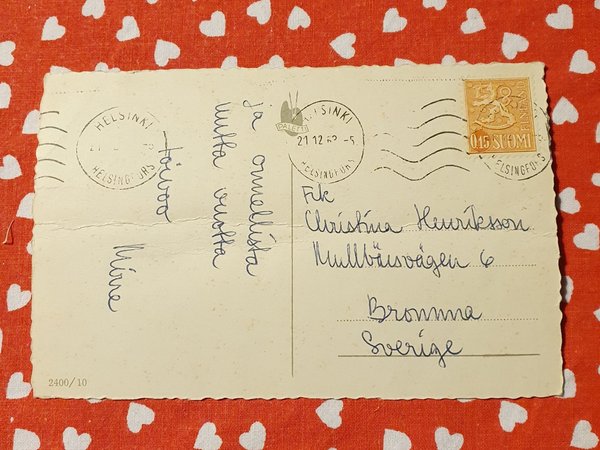 ja onnellista
uutta vuotta
toivoo
Minne
HELSINKI
HELSINGFORS
PALETTI
HELSINKI
21.12.62.-5.
HELSINGFORS
0,15 SUOMI
HELSINGFORS
Frk
Christina Henriksson
Mullbärsvägen 6
Bromma
Sverige
2400/10